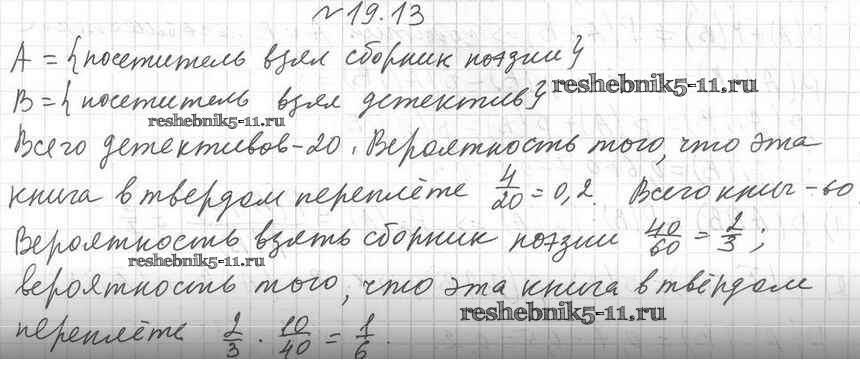 №19.13
A = {посетитель взял сборник поэзии}
B = {посетитель взял детектив}
reshebnik5-11.ru
reshebnik5-11.ru
Всего детективов-20. Вероятность того, что эта
книга в твердом переплёте 4/20 = 0,2. Всего книг - 60.
Вероятность взять сборник поэзии 40/60 = 2/3;
reshebnik5-11.ru
вероятность того, что эта книга в твёрдом
reshebnik5-11.ru
переплёте 2/3 · 10/40 = 1/6.